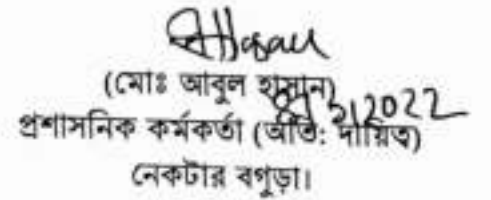 (মোঃ আবুল হাসান)
প্রশাসনিক কর্মকর্তা (অতি: দায়িত্ব)
নেকটার বগুড়া।